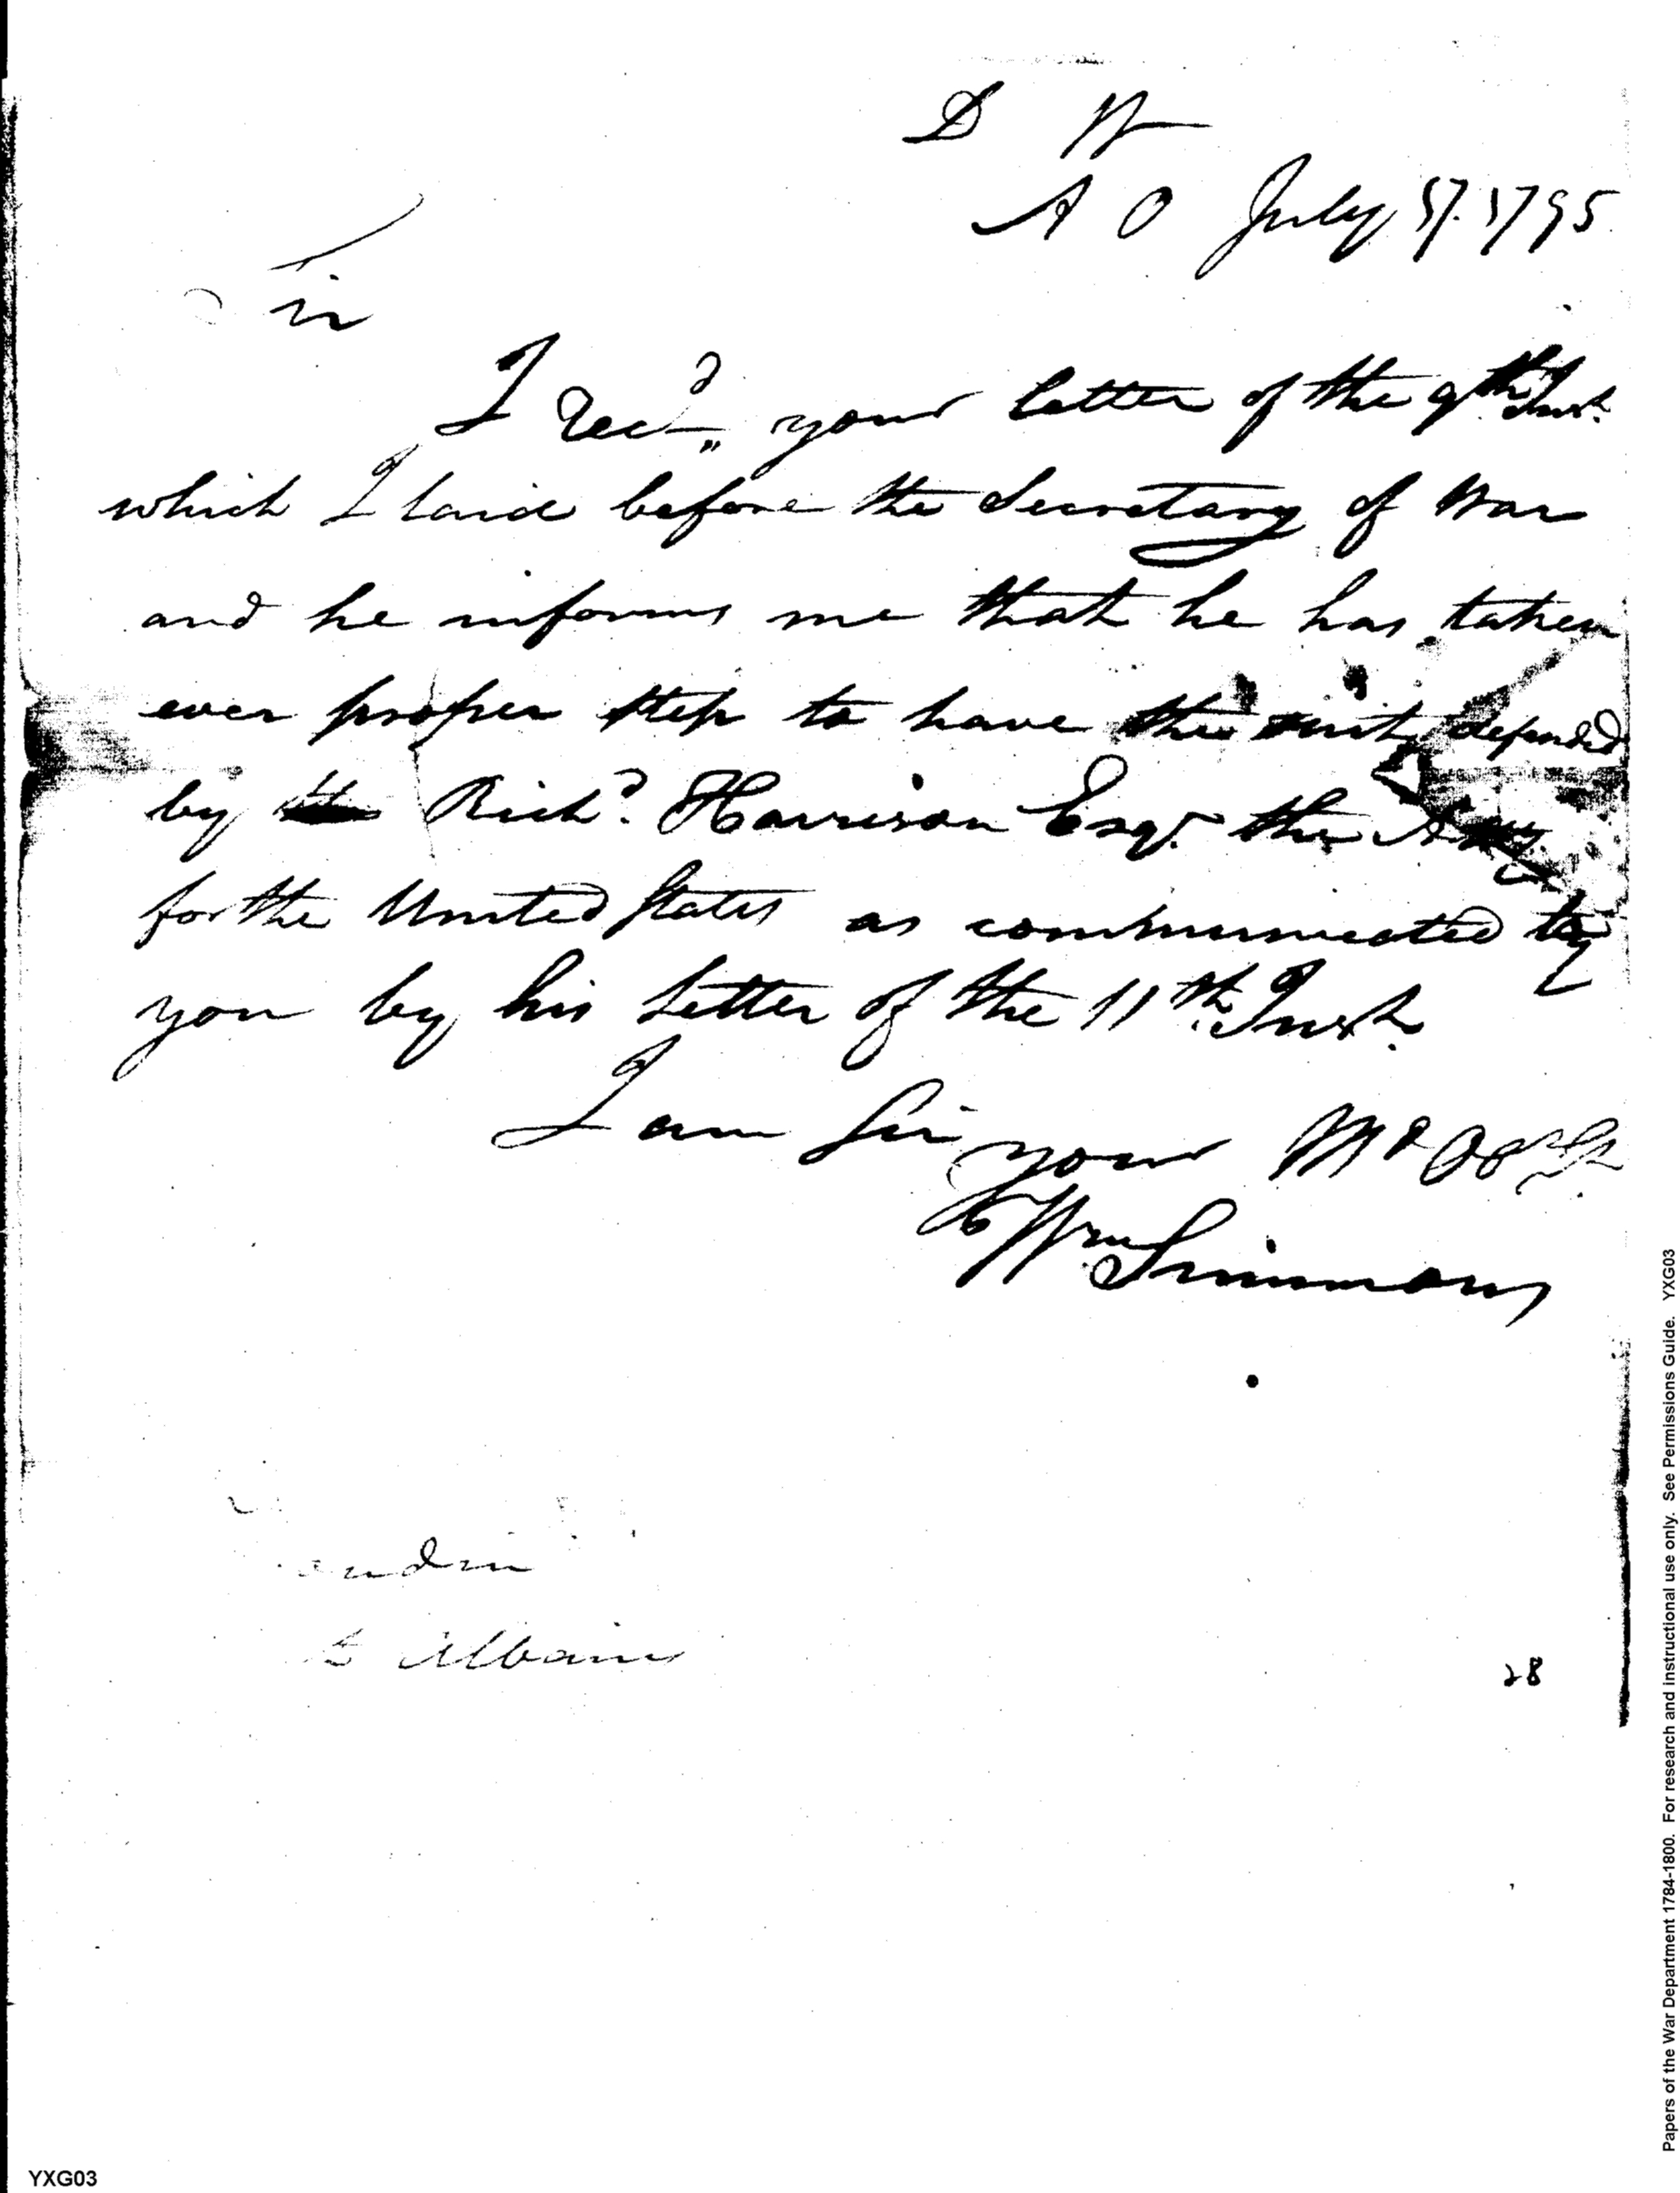 D W
A O July 17. 1795
Sir
I Rec.d your letter of the 9th Inst.
which I laid before the Secretary of War
and he informs me that he has taken
ever proper step to have the suit defended
by Rich.d Harrison Esq.r the
for the United States as communicated to
you by his Letter of the 11th Inst.
I am Sir your
Wm Simmons
Albany
28
YXG03
Papers of the War Department 1784-1800. For research and instructional use only. See Permissions Guide. YXG03